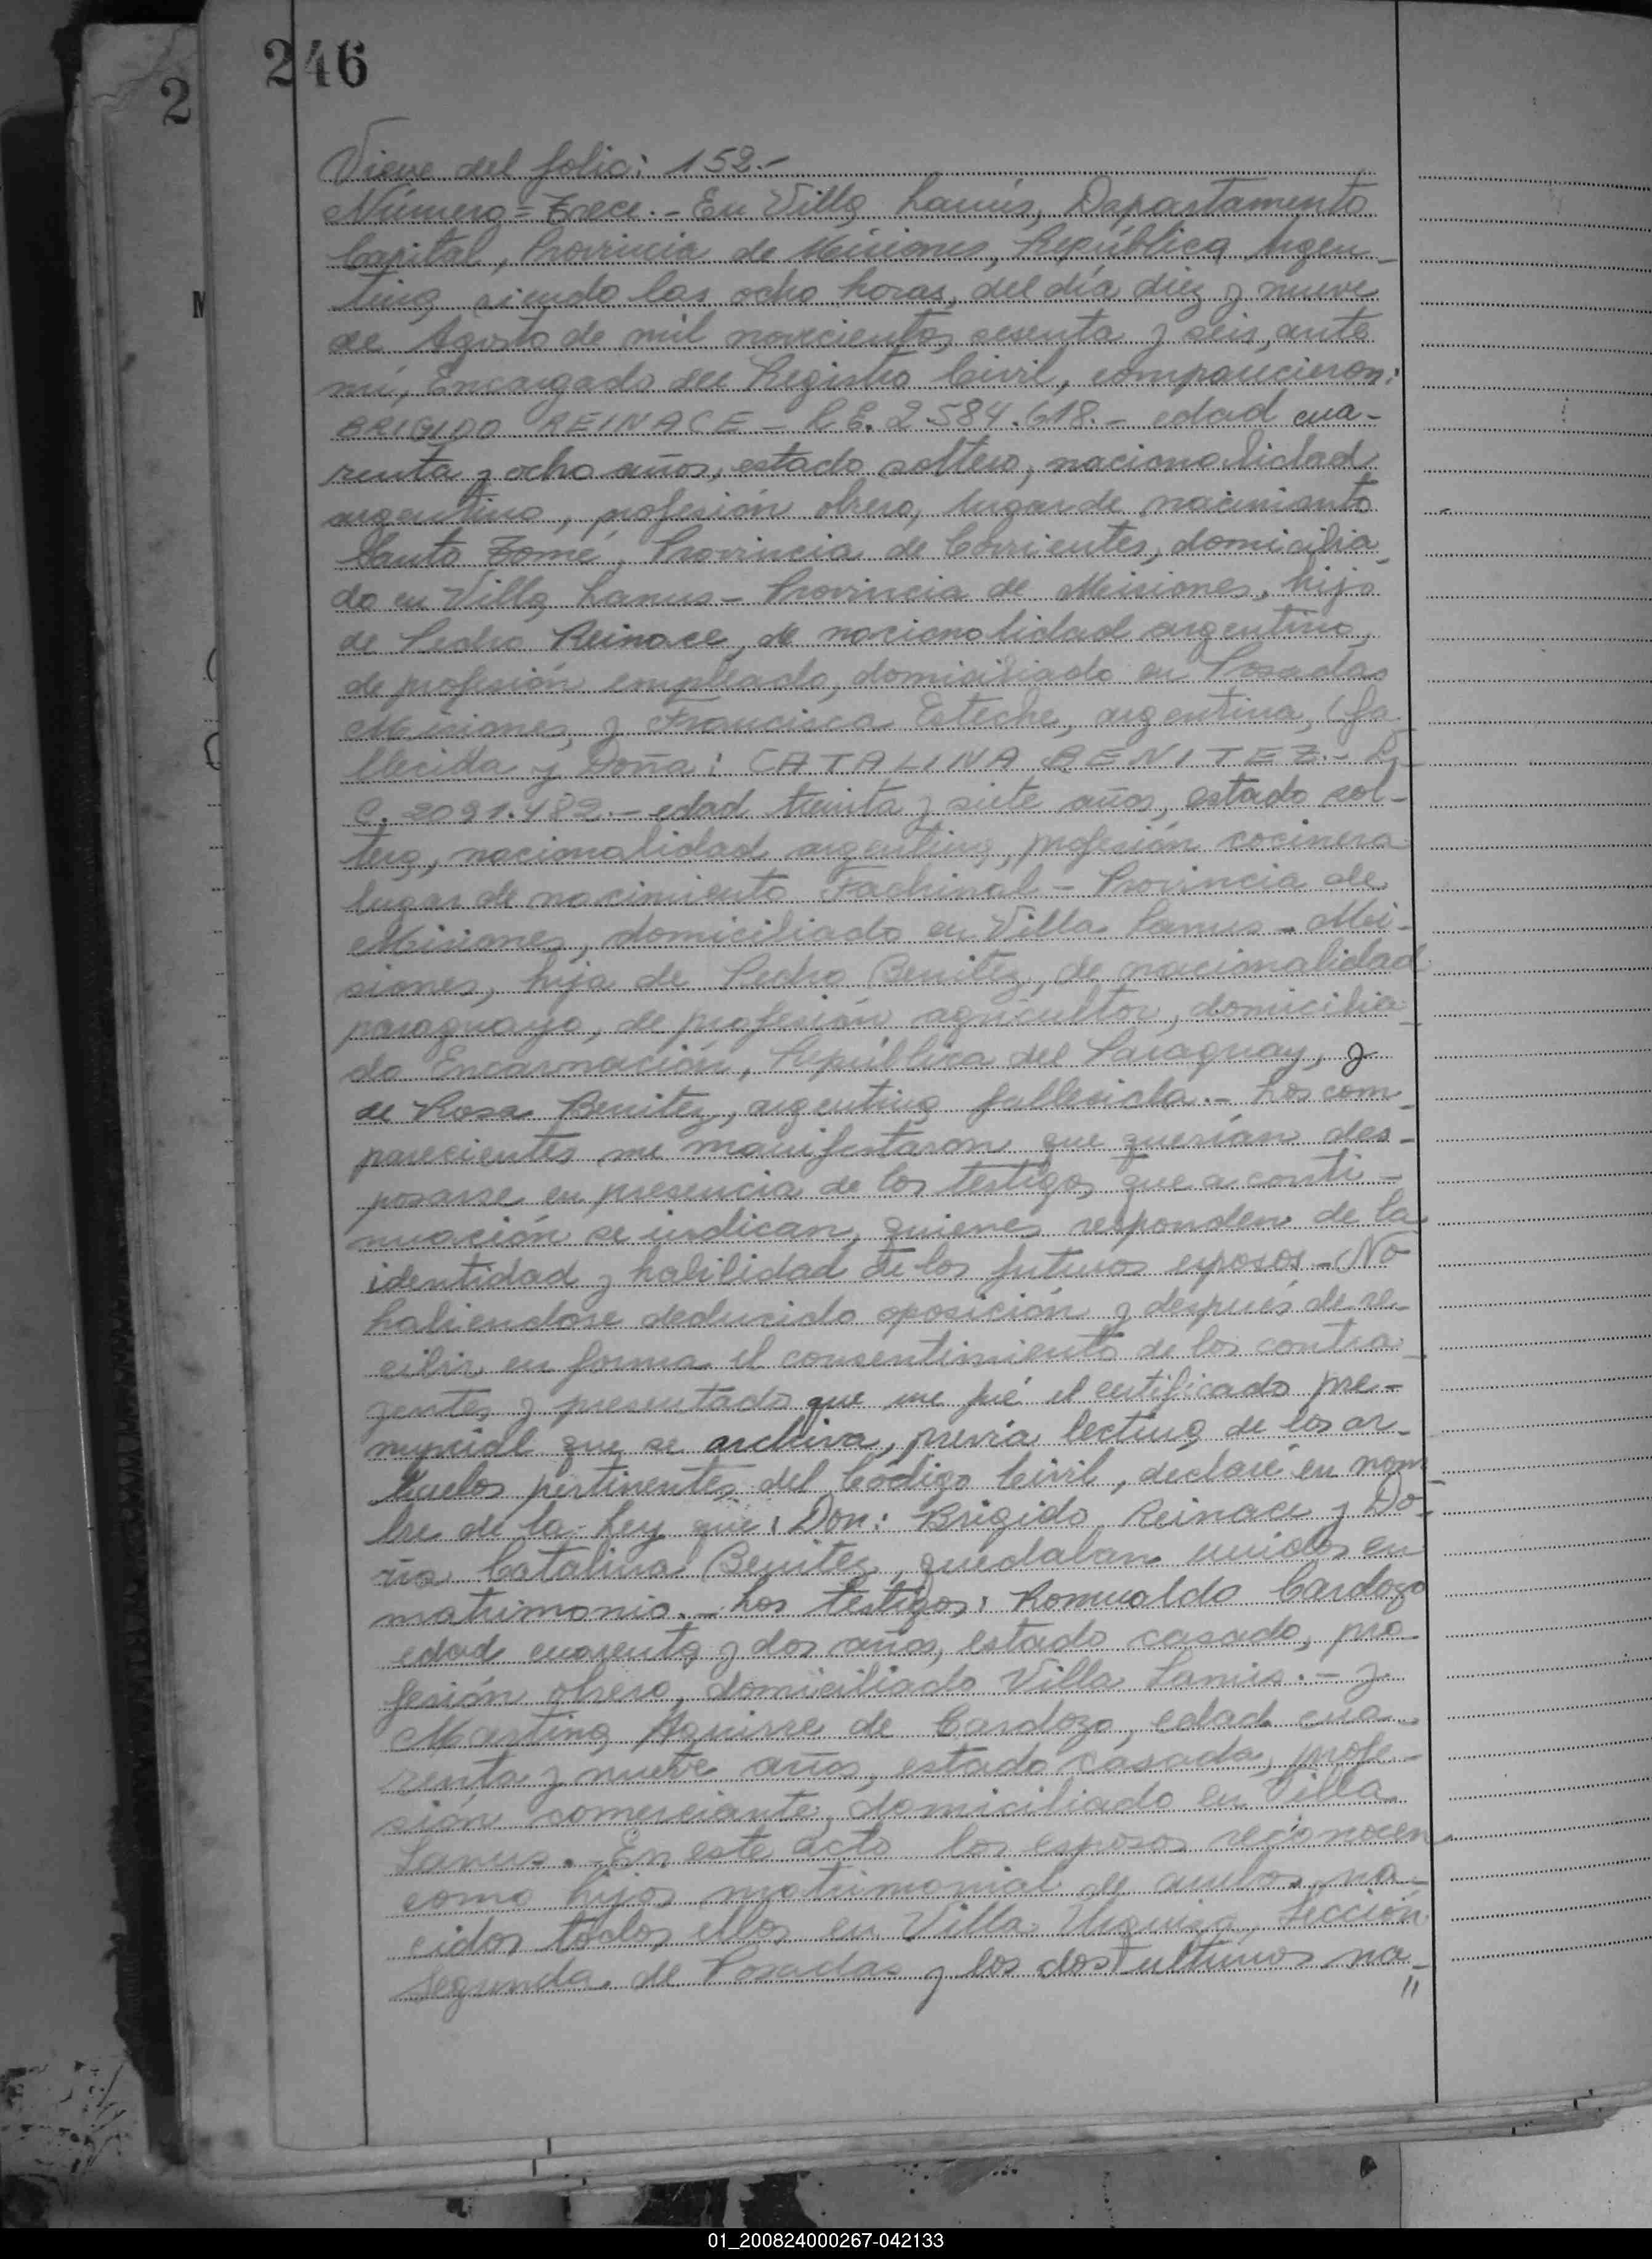 246
2
Viene del folio: 152.-
Número = Trece. - En Villa Lanús, Departamento
Capital, Provincia de Misiones, República Argen-
tina, siendo las ocho horas, del día diez y nueve
de Agosto de mil novecientos sesenta y seis, ante
mí, Encargado del Registro Civil, comparecieron:
BRIGIDO REINACE - L.E. 2.584.618.- edad cua-
renta y ocho años, estado soltero, nacionalidad
argentino, profesión obrero, lugar de nacimiento
Santo Tomé, Provincia de Corrientes, domicilia-
do en Villa Lanus - Provincia de Misiones, hijo
de Pedro Reinace, de nacionalidad argentino,
de profesión empleado, domiciliado en Posadas
Misiones, y Francisca Esteche, argentina, (fa-
llecida y Doña: CATALINA BENITEZ.- L.
C. 2091.482.- edad treinta y siete años, estado sol-
tera, nacionalidad argentina, profesión cocinera
lugar de nacimiento Fachinal - Provincia de
Misiones, domiciliada en Villa Lanus - Mi-
siones, hija de Pedro Benitez, de nacionalidad
paraguayo, de profesión agricultor, domicilia-
do Encarnación, República del Paraguay, y
de Rosa Benitez, argentina fallecida. - Los com-
parecientes me manifestaron que querían des-
posarse en presencia de los testigos que a conti-
nuación se indican, quienes responden de la
identidad y habilidad de los futuros esposos - No
habiendose deducido oposición y después de re-
cibir en forma el consentimiento de los contra-
yentes y presentado que me fué el certificado pre-
nupcial que se archiva, previa lectura de los ar-
tículos pertinentes del Código Civil, declaré en nom-
bre de la Ley que: Don: Brigido Reinace y Do-
ña Catalina Benitez, quedaban unidos en
matrimonio. - Los testigos: Romualdo Cardozo
edad cuarenta y dos años, estado casado, pro-
fesión obrero, domiciliado Villa Lanus. - y
Martina Aguirre de Cardozo, edad cua-
renta y nueve años, estado casada, profe-
sión comerciante, domiciliado en Villa
Lanus. - En este acto los esposos reconocen
como hijos matrimonial de ambos, na-
cidos todos ellos en Villa Urquiza, Sección
Segunda de Posadas y los dos ultimos na-
"
01_200824000267-042133